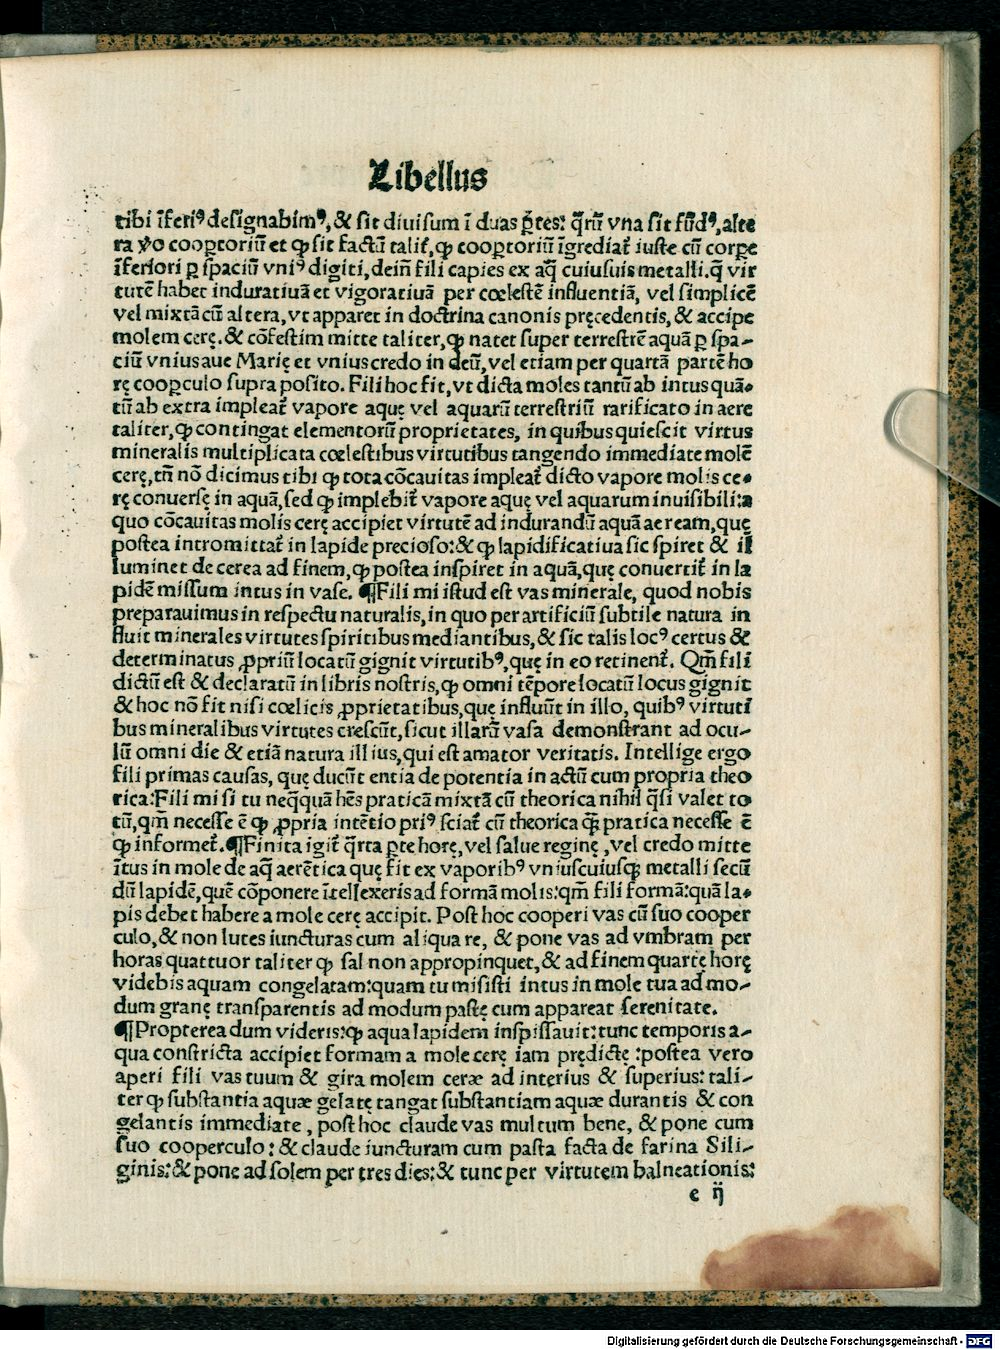 Libellus
tibi īferiꝰ designabimꝰ, & sit diuisum ī duas ꝑtes: q̄rū vna sit fūdꝰ, alte
ra ꝟo cooꝑtoriū et ꝙ sit factū talit̃, ꝙ cooꝑtoriū īgrediat̃ iuste cū corꝑe
īferiori ꝑ spaciū vniꝰ digiti, dein̄ fili capies ex aq̄ cuiusuis metalli. q̄ vir
tutē habet induratiuā et vigoratiuā per cœlestē influentiā, vel simplicē
vel mixtā cū altera, vt apparet in doctrina canonis pręcedentis, & accipe
molem cerę. & cōfestim mitte taliter, ꝙ natet super terrestrē aquā ꝑ spa-
ciū vnius aue Marię et vnius credo in deū, vel etiam per quartā partē ho
rę cooꝑculo supra posito. Fili hoc fit, vt dicta moles tantū ab intus quā-
tū ab extra impleat̃ vapore aquę vel aquarū terrestriū rarificato in aere
taliter, ꝙ contingat elementorū proprietates, in quibus quiescit virtus
mineralis multiplicata cœlestibus virtutibus tangendo immediate molē
cerę, tn̄ nō dicimus tibi ꝙ tota cōcauitas impleat̃ dicto vapore molis ce-
rę conuersę in aquā, sed ꝙ implebit̃ vapore aquę vel aquarum inuisibili: a
quo cōcauitas molis cerę accipiet virtutē ad indurandū aquā aeream, quę
postea intromittat̃ in lapide precioso: & ꝙ lapidificatiua sic spiret & il
luminet de cerea ad finem, ꝙ postea inspiret in aquā, quę conuertit̃ in la
pidē missum intus in vase. ¶Fili mi istud est vas minerale, quod nobis
preparauimus in respectu naturalis, in quo per artificiū subtile natura in
fluit minerales virtutes spiritibus mediantibus, & sic talis locꝰ certus &
determinatus ꝓpriū locatū gignit virtutibꝰ, quę in eo retinent̃. Qm̄ fili
dictū est & declaratū in libris nostris, ꝙ omni tēpore locatū locus gignit
& hoc nō fit nisi cœlicis ꝓprietatibus, quę influūt in illo, quibꝰ virtuti
bus mineralibus virtutes crescūt, sicut illarū vasa demonstrant ad ocu-
lū omni die & etiā natura illius, qui est amator veritatis. Intellige ergo
fili primas causas, quę ducūt entia de potentia in actū cum propria theo
rica: Fili mi si tu neq̄quā hēs praticā mixtā cū theorica nihil q̄si valet to
tū, qm̄ necesse ē ꝙ ꝓpria intētio priꝰ sciat̃ cū theorica q̄ꝫ pratica necesse ē
ꝙ informet̃. ¶Finita igit̃ q̄rta ꝑte horę, vel salue reginę, vel credo mitte
ītus in mole de aq̄ aerētica quę fit ex vaporibꝰ vniuscuiusqꝫ metalli secū
dū lapidē, quē cōponere ītellexeris ad formā molis: qm̄ fili formā: quā la-
pis debet habere a mole cerę accipit. Post hoc cooperi vas cū suo cooper
culo, & non lutes iuncturas cum aliqua re, & pone vas ad vmbram per
horas quattuor taliter ꝙ sal non appropinquet, & ad finem quartę horę
videbis aquam congelatam: quam tu misisti intus in mole tua ad mo-
dum granę transparentis ad modum pastę cum appareat serenitate.
¶Propterea dum videris: ꝙ aqua lapidem inspissauit: tunc temporis a-
qua constricta accipiet formam a mole cerę iam prędictę: postea vero
aperi fili vas tuum & gira molem ceræ ad interius & superius: tali-
ter ꝙ substantia aquæ gelatę tangat substantiam aquæ durantis & con
gelantis immediate, post hoc claude vas multum bene, & pone cum
suo cooperculo: & claude iuncturam cum pasta facta de farina Sili-
ginis: & pone ad solem per tres dies: & tunc per virtutem balneationis:
e ij
Digitalisierung gefördert durch die Deutsche Forschungsgemeinschaft - DFG